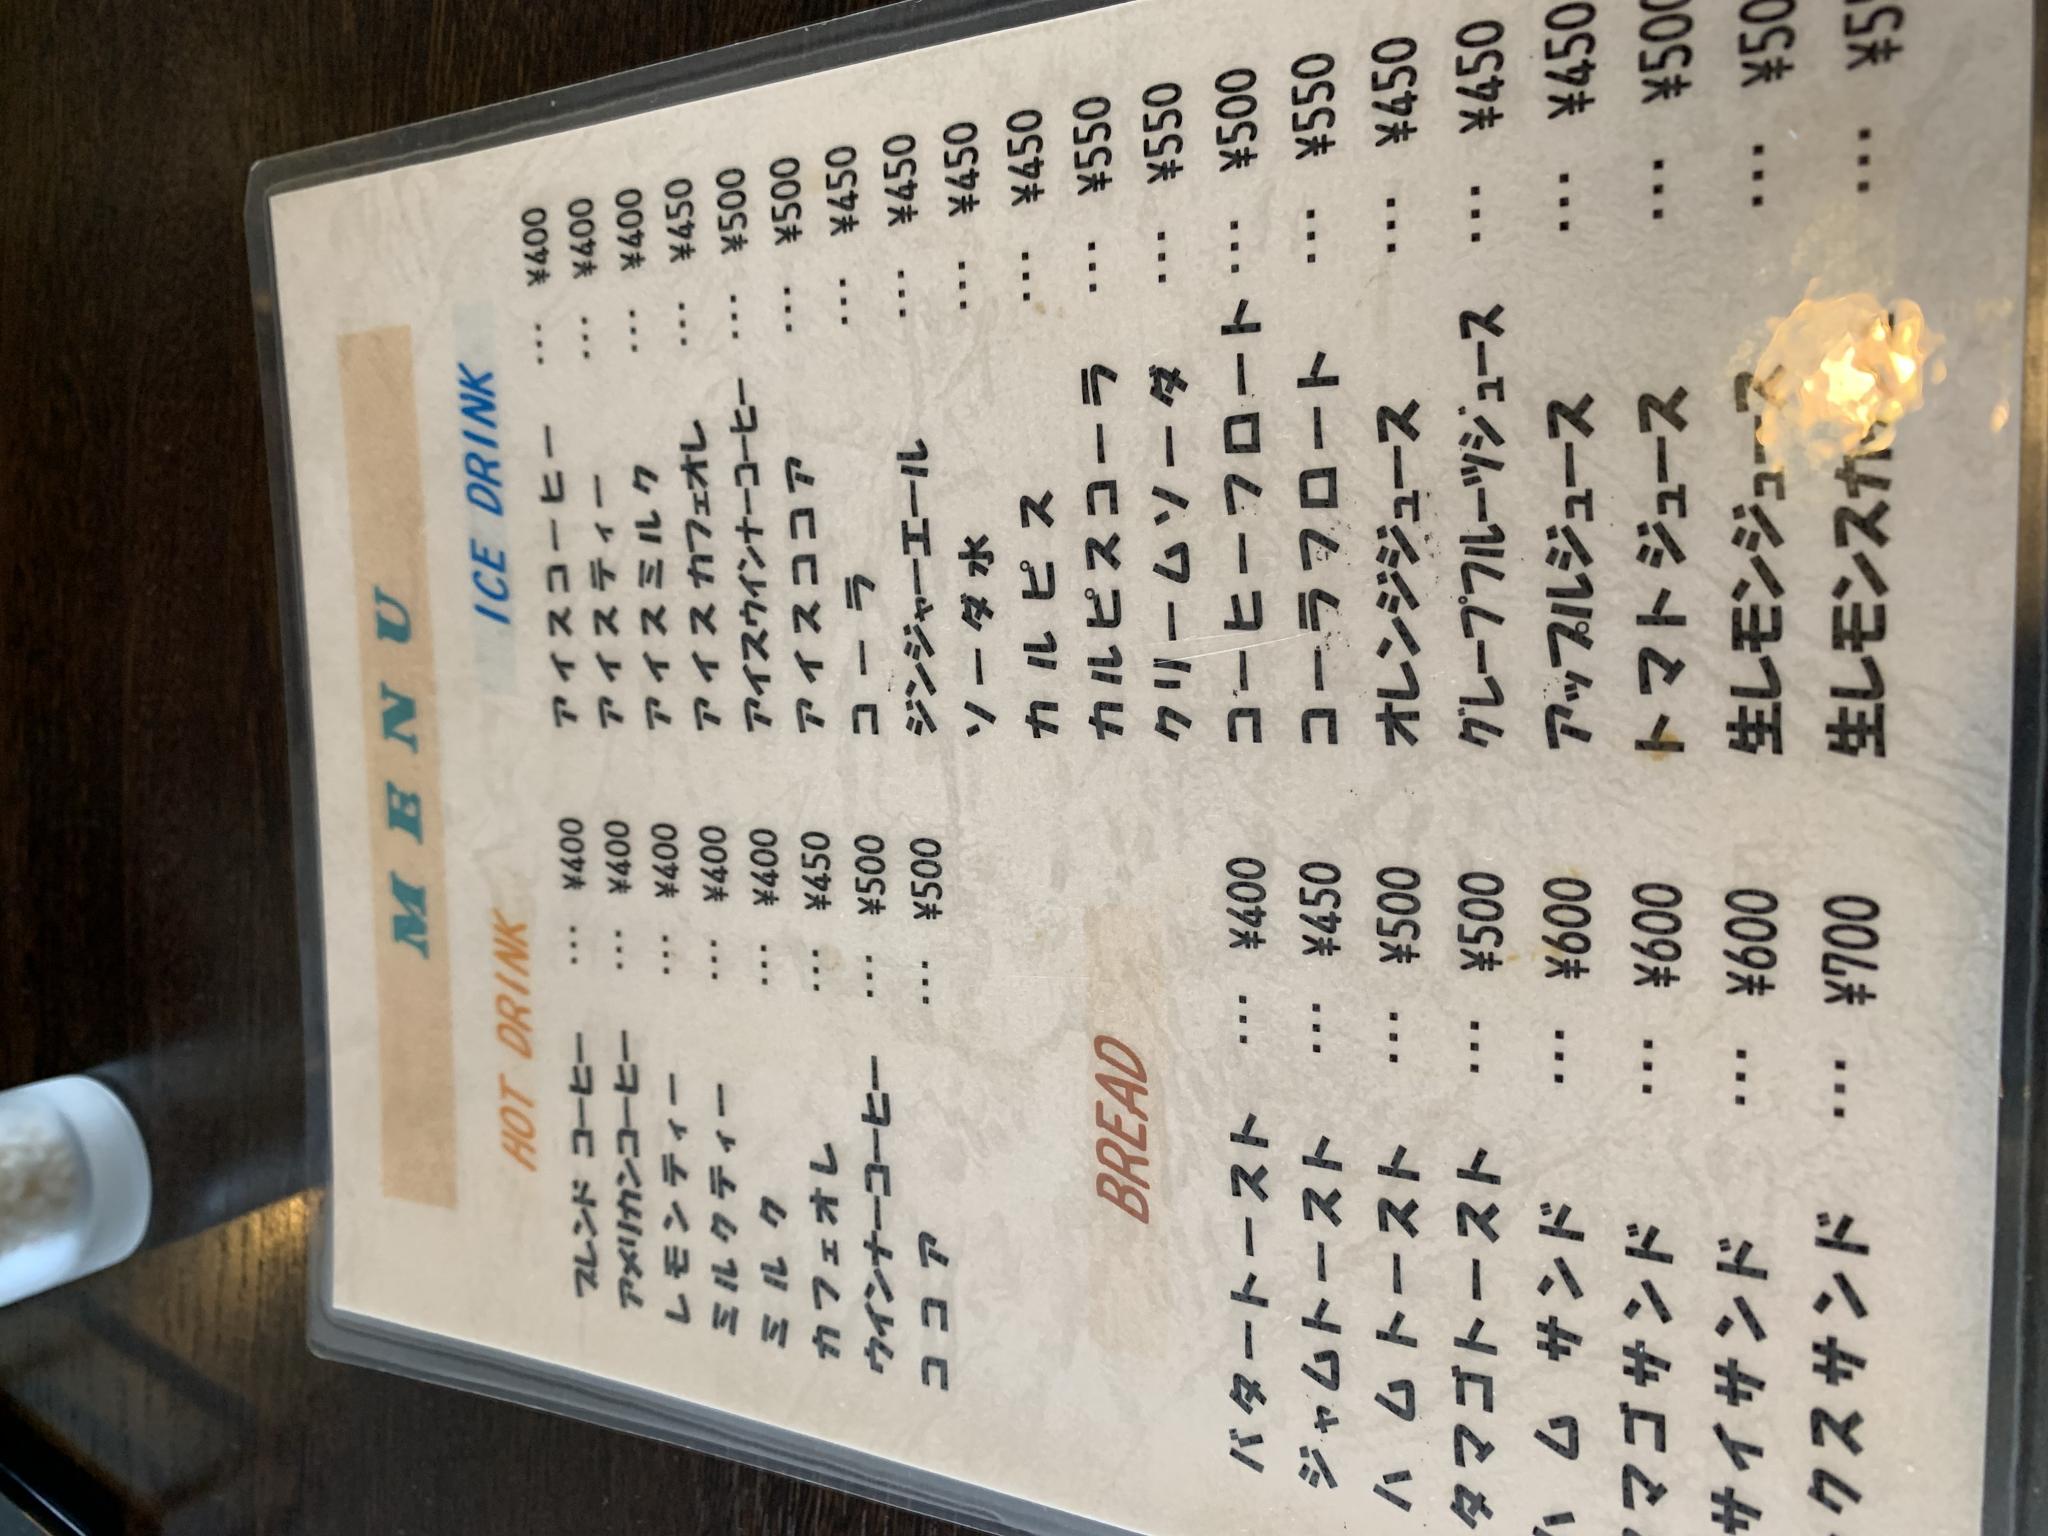 MENU
HOT DRINK
ブレンドコーヒー … ¥400
アメリカンコーヒー … ¥400
レモンティー … ¥400
ミルクティー … ¥400
ミルク … ¥400
カフェオレ … ¥450
ウインナーコーヒー … ¥500
ココア … ¥500
BREAD
バタートースト … ¥400
ジャムトースト … ¥450
ハムトースト … ¥500
タマゴトースト … ¥500
ハムサンド … ¥600
マゴサンド … ¥600
サイサンド … ¥600
クスサンド … ¥700
ICE DRINK
アイスコーヒー … ¥400
アイスティー … ¥400
アイスミルク … ¥400
アイスカフェオレ … ¥450
アイスウインナーコーヒー … ¥500
アイスココア … ¥500
コーラ … ¥450
ジンジャーエール … ¥450
ソーダ水 … ¥450
カルピス … ¥450
カルピスコーラ … ¥550
クリームソーダ … ¥550
コーヒーフロート … ¥500
コーラフロート … ¥550
オレンジジュース … ¥450
グレープフルーツジュース … ¥450
アップルジュース … ¥450
トマトジュース … ¥500
生レモンジュース … ¥50
生レモンスカ … ¥5